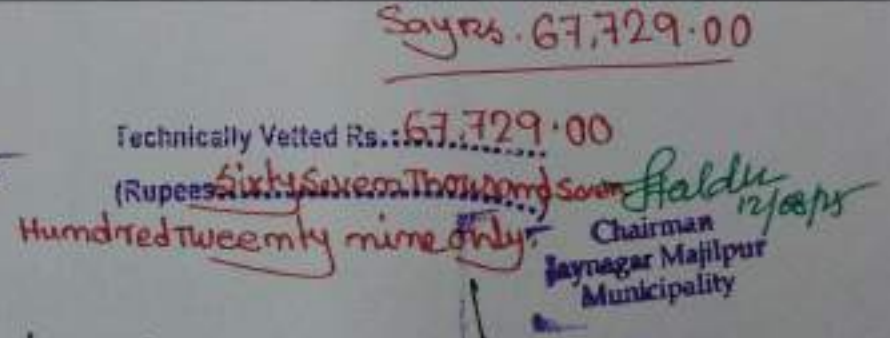 Say Rs. 67,729.00
Technically Vetted Rs.: 67,729.00
(Rupees Sixty Seven Thousand Seven
Hundred Tweemty nine only.
Haldu
12/08/25
Chairman
Jaynagar Majilpur
Municipality